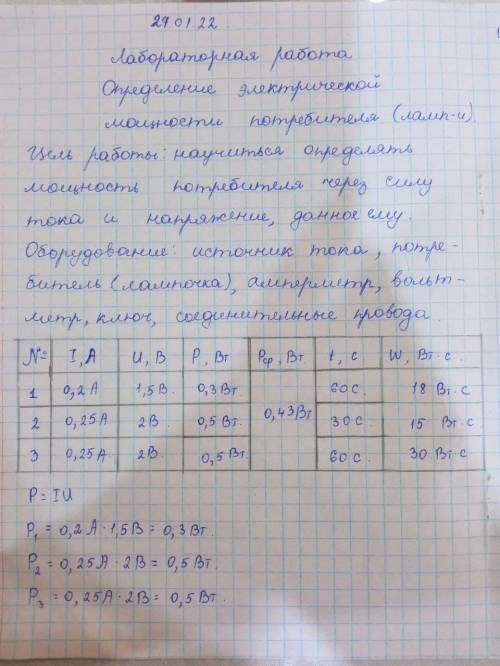 29.01.22
Лабораторная работа
Определение электрической
мощности потребителя (ламп-и).
Цель работы: научиться определять
мощность потребителя через силу
тока и напряжение, данное ему.
Оборудование: источник тока, потре-
битель (лампочка), амперметр, вольт-
метр, ключ, соединительные провода.
№ I, А U, В P, Вт Pср, Вт t, с W, Вт·с
1 0,2А 1,5В. 0,3Вт. 60с. 18 Вт·с
2 0,25А 2В 0,5Вт. 0,43Вт 30с. 15 Вт·с
3 0,25А 2В. 0,5Вт. 60с. 30 Вт·с
P = IU
P₁ = 0,2А · 1,5В = 0,3Вт.
P₂ = 0,25А · 2В = 0,5Вт.
P₃ = 0,25А · 2В = 0,5Вт.